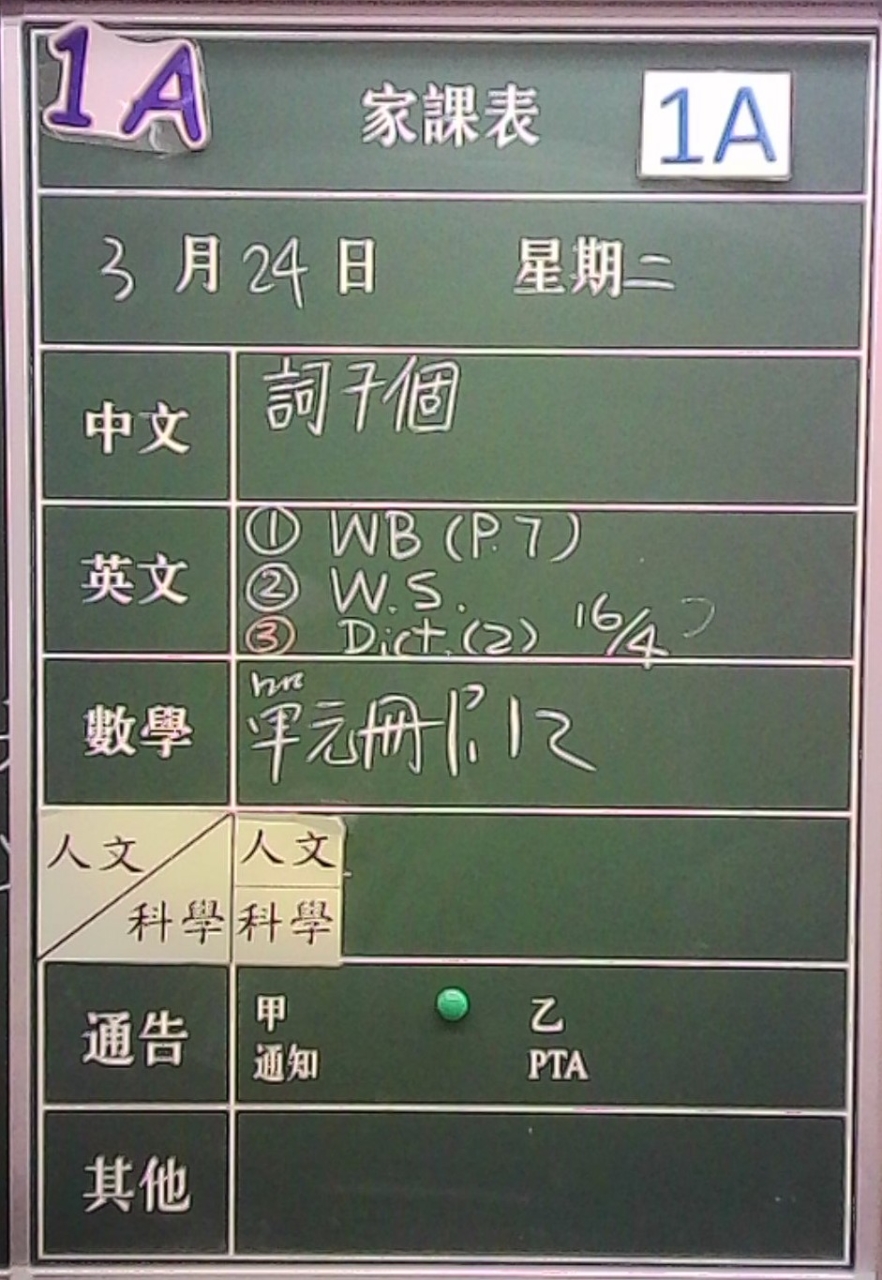 1A 家課表 1A
3月24日 星期二
中文 詞子個
英文 ① WB (P.7)
② W.S.
③ Dict.(2) 16/4
數學 單元冊 P.12
人文 人文
科學 科學
通告 甲 乙
通知 PTA
其他